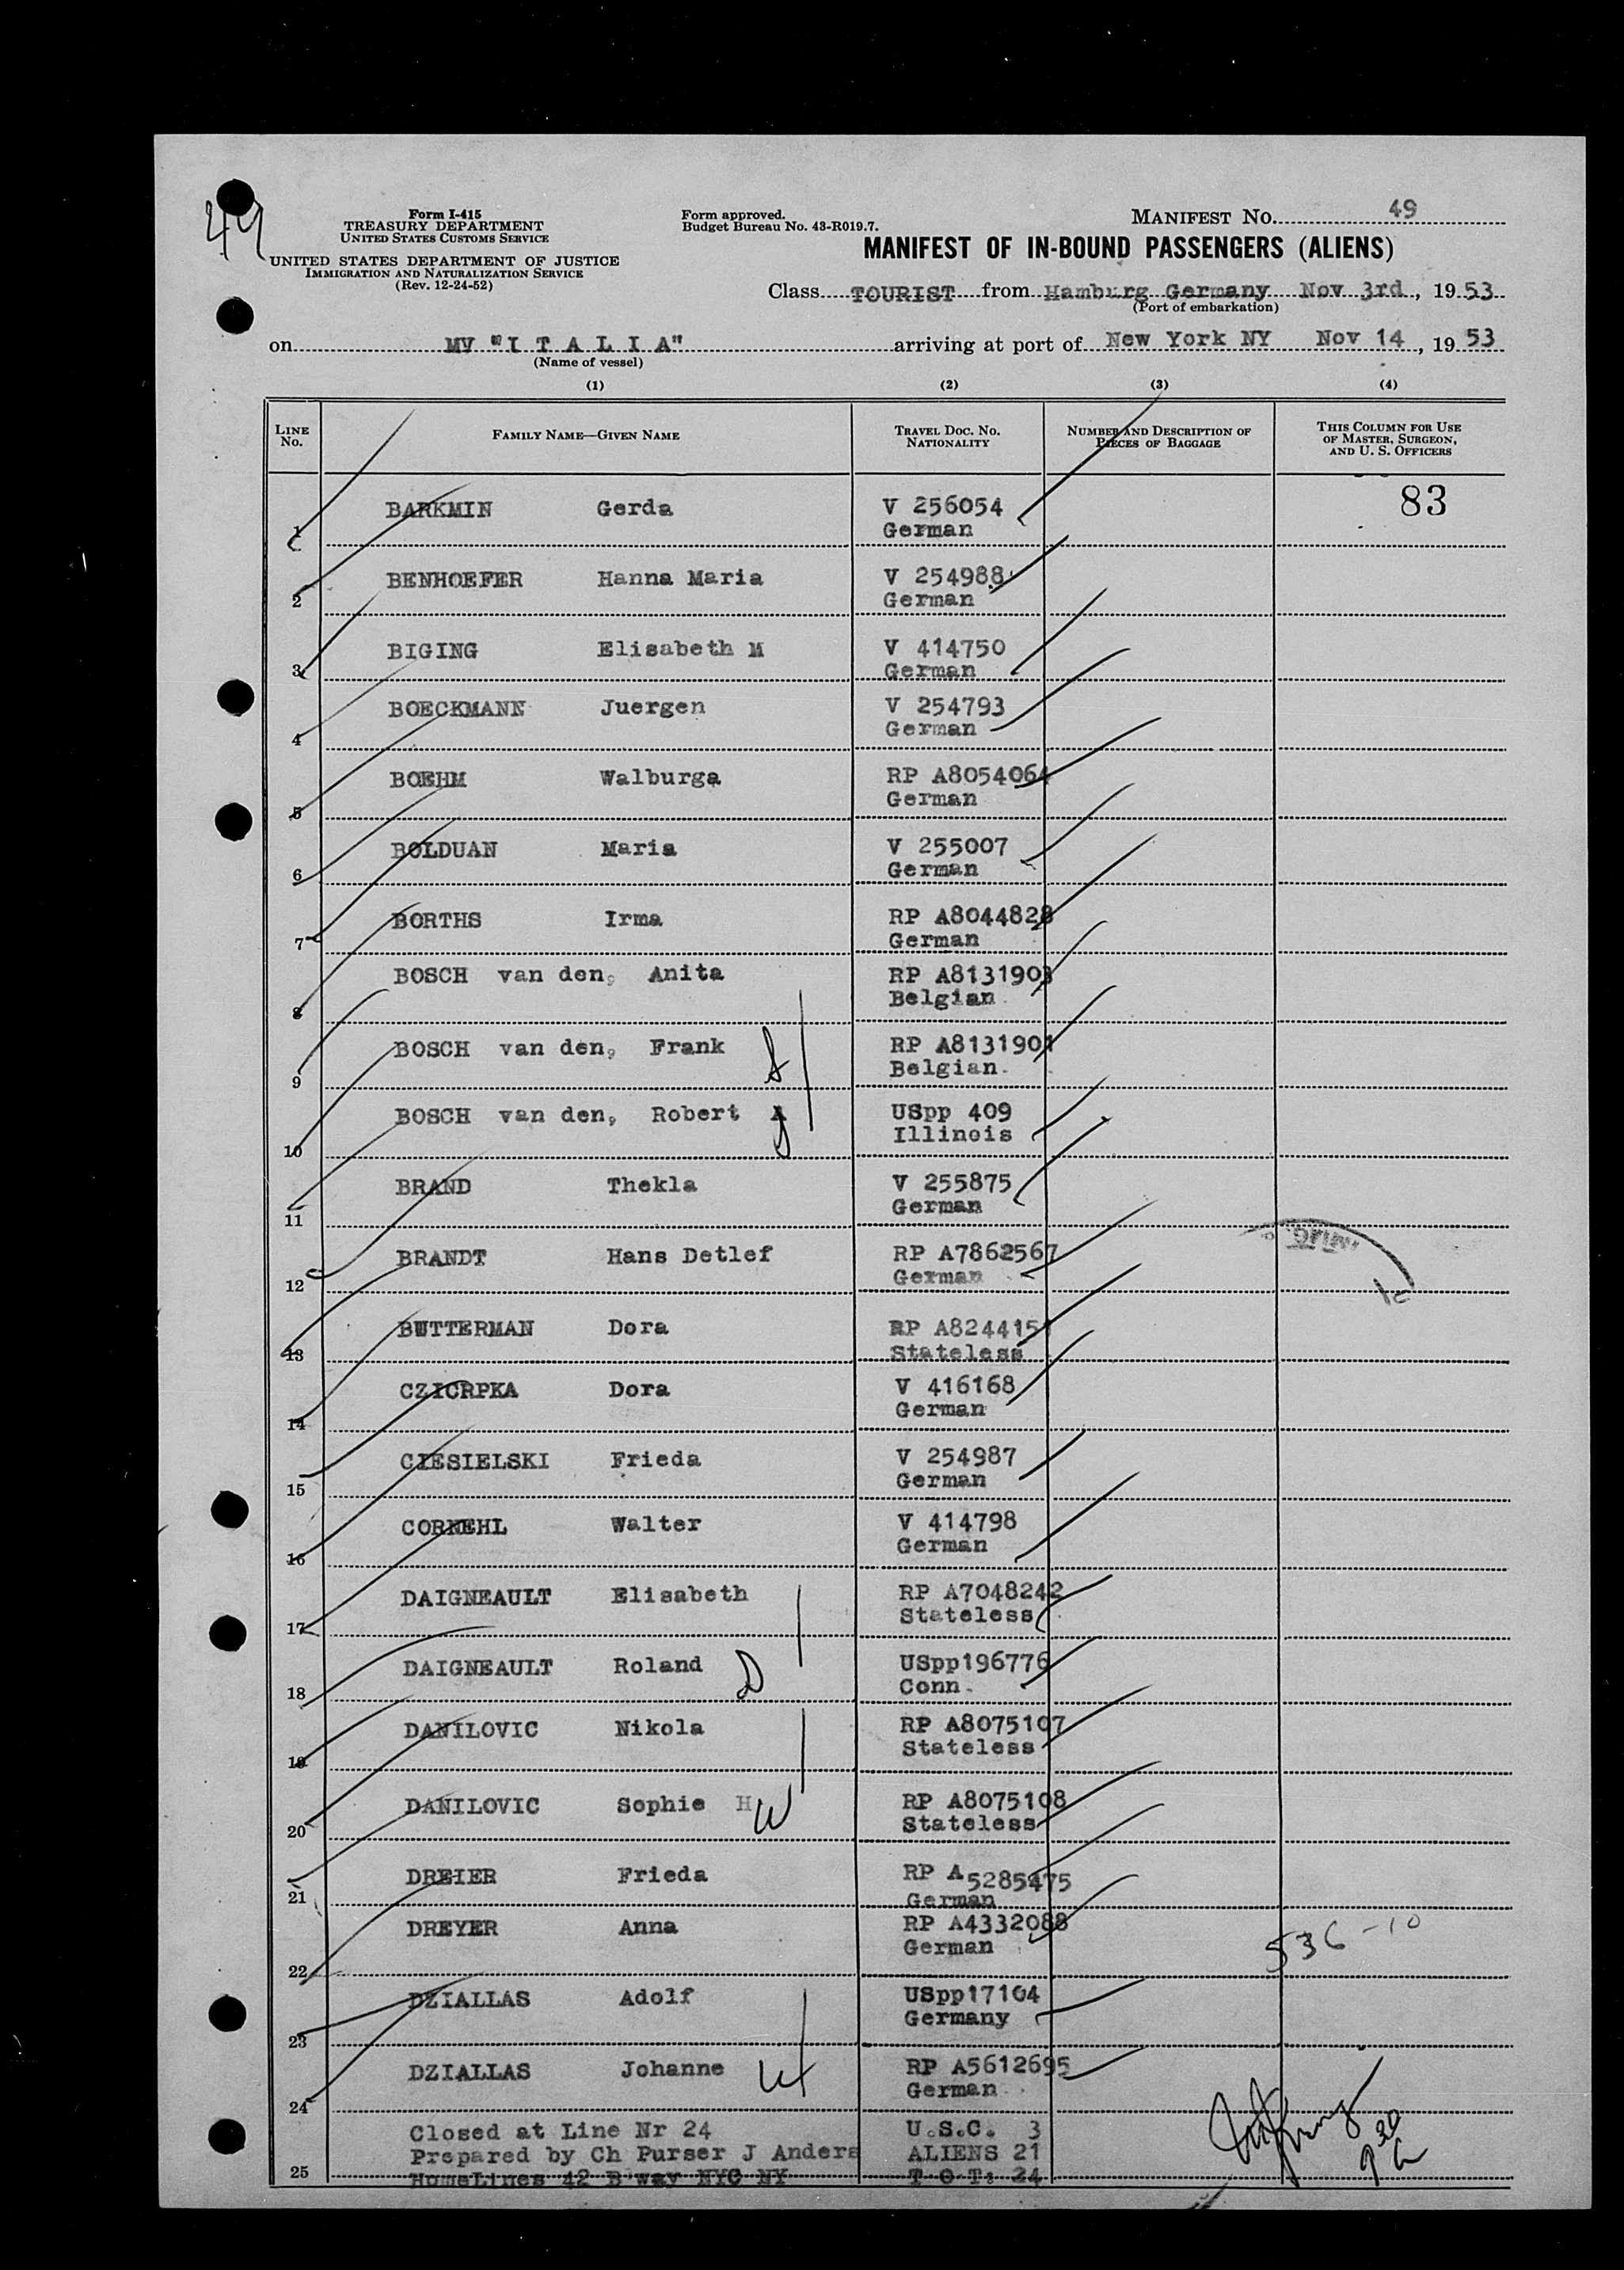 49
Form I-415
TREASURY DEPARTMENT
UNITED STATES CUSTOMS SERVICE
UNITED STATES DEPARTMENT OF JUSTICE
IMMIGRATION AND NATURALIZATION SERVICE
(Rev. 12-24-52)
Form approved.
Budget Bureau No. 43-R019.7.
MANIFEST No. 49
MANIFEST OF IN-BOUND PASSENGERS (ALIENS)
Class TOURIST from Hamburg Germany Nov 3rd, 1953
(Port of embarkation)
on MV "I T A L I A" arriving at port of New York NY Nov 14, 1953
(Name of vessel)
(1) (2) (3) (4)
LINE No. FAMILY NAME—GIVEN NAME TRAVEL DOC. NO. NATIONALITY NUMBER AND DESCRIPTION OF PIECES OF BAGGAGE THIS COLUMN FOR USE OF MASTER, SURGEON, AND U. S. OFFICERS
83
1 BARKMIN Gerda V 256054
German
2 BENHOEFER Hanna Maria V 254988
German
3 BIGING Elisabeth M V 414750
German
4 BOECKMANN Juergen V 254793
German
5 BOEHM Walburga RP A8054064
German
6 BOLDUAN Maria V 255007
German
7 BORTHS Irma RP A8044828
German
8 BOSCH van den, Anita RP A8131903
Belgian
9 BOSCH van den, Frank RP A8131901
Belgian
10 BOSCH van den, Robert USpp 409
Illinois
11 BRAND Thekla V 255875
German
12 BRANDT Hans Detlef RP A7862567
German
13 BUTTERMAN Dora RP A8244151
Stateless
14 CZICRPKA Dora V 416168
German
15 CIESIELSKI Frieda V 254987
German
16 CORNEHL Walter V 414798
German
17 DAIGNEAULT Elisabeth RP A7048242
Stateless
18 DAIGNEAULT Roland D USpp196776
Conn.
19 DANILOVIC Nikola RP A8075107
Stateless
20 DANILOVIC Sophie H W RP A8075108
Stateless
21 DREIER Frieda RP A5285475
German
22 DREYER Anna RP A4332088
German
536-10
23 DZIALLAS Adolf USpp17104
Germany
24 DZIALLAS Johanne RP A5612695
German
Closed at Line Nr 24 U.S.C. 3
Prepared by Ch Purser J Anders ALIENS 21
25 HomeLines 42 B'way NYC NY T O T: 24